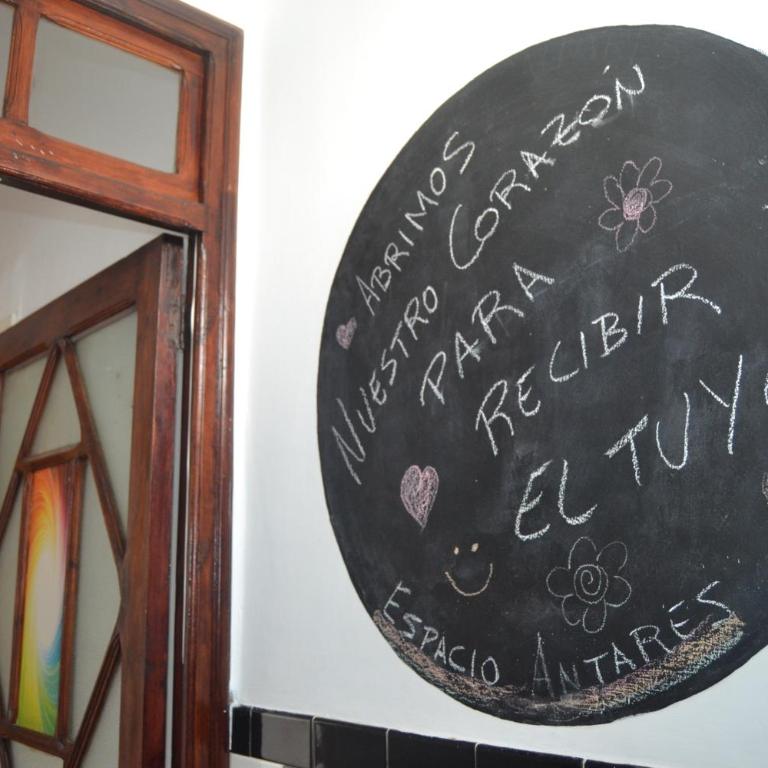 ABRIMOS
NUESTRO CORAZÓN
PARA
RECIBIR
EL TUYO
ESPACIO ANTARES